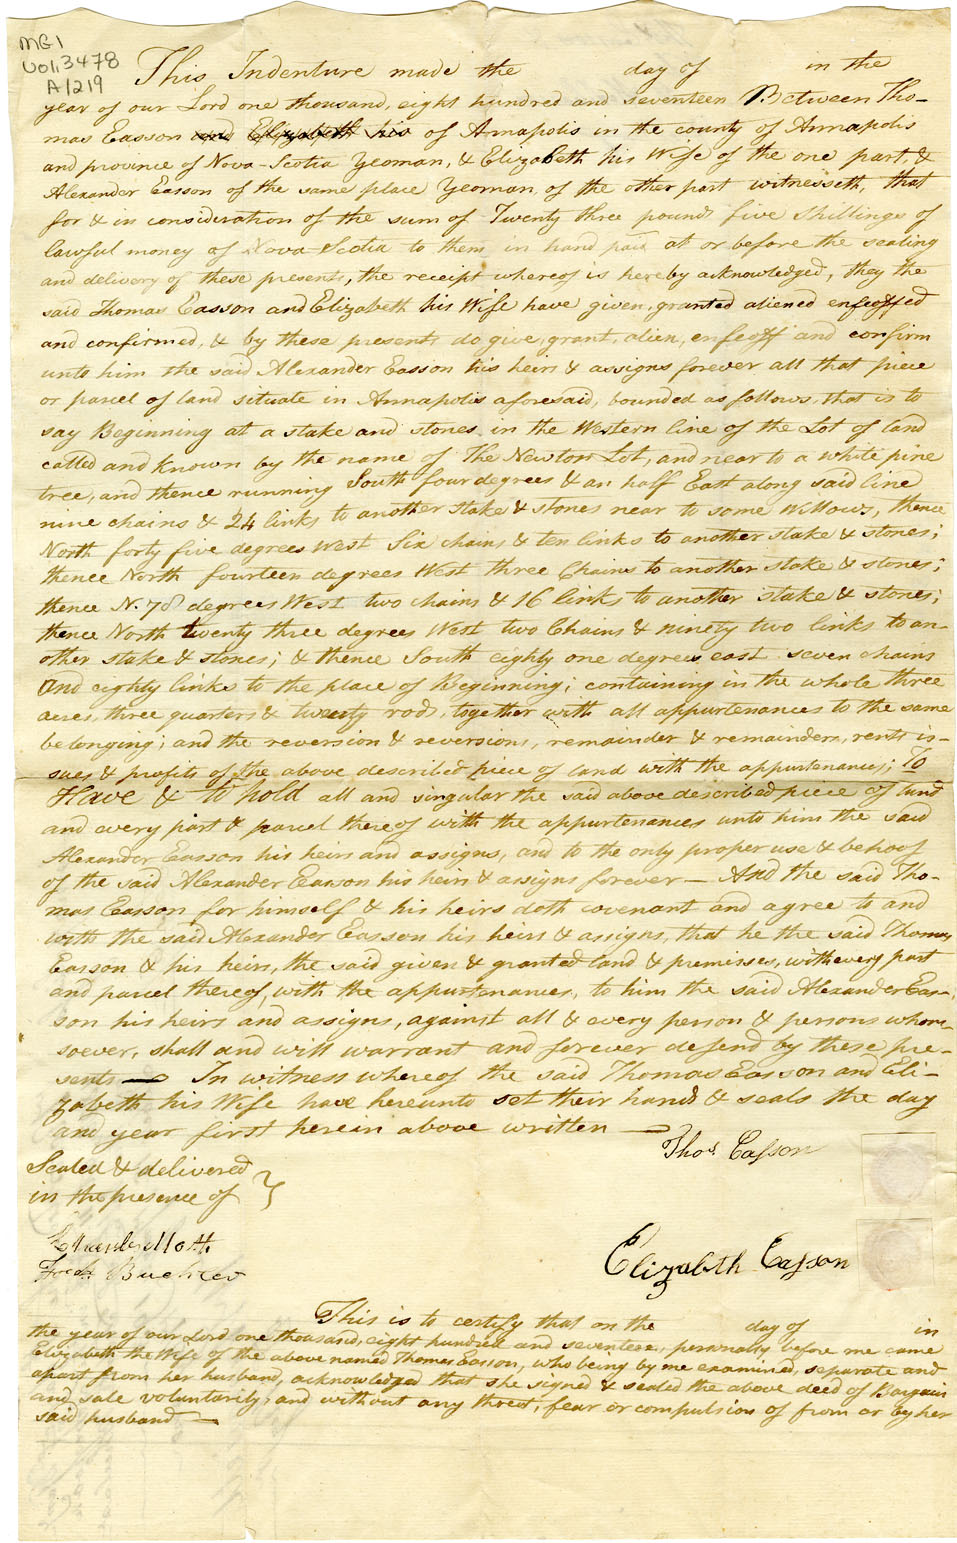 MG1
Vol.3478
A/219
This Indenture made the day of in the
year of our Lord one thousand, eight hundred and seventeen Between Tho-
mas Easson and Elizabeth his of Annapolis in the county of Annapolis
and province of Nova-Scotia Yeoman, & Elizabeth his Wife of the one part, &
Alexander Easson of the same place Yeoman, of the other part witnesseth, that
for & in consideration of the sum of Twenty three pounds five shillings of
lawful money of Nova Scotia to them in hand paid at or before the sealing
and delivery of these presents, the receipt whereof is hereby acknowledged, they the
said Thomas Easson and Elizabeth his Wife have given, granted aliened enfeoffed
and confirmed, & by these presents do give, grant, alien, enfeoff and confirm
unto him the said Alexander Easson his heirs & assigns forever all that piece
or parcel of land situate in Annapolis aforesaid, bounded as follows, that is to
say Beginning at a stake and stones in the Western line of the Lot of land
called and known by the name of The Newton Lot, and near to a white pine
tree, and thence running South four degrees & an half East along said line
nine chains & 24 links to another stake & stones near to some Willows, thence
North forty five degrees West Six chains & ten links to another stake & stones;
thence North fourteen degrees West three Chains to another stake & stones;
thence N. 78 degrees West two chains & 16 links to another stake & stones;
thence North twenty three degrees West two Chains & ninety two links to an-
other stake & stones; & thence South eighty one degrees east seven chains
and eighty links to the place of Beginning; containing in the whole three
acres, three quarters & twenty rod, together with all appurtenances to the same
belonging; and the reversion & reversions, remainder & remainders, rents is-
sues & profits of the above described piece of land with the appurtenances; To
Have & to hold all and singular the said above described piece of land
and every part & parcel thereof with the appurtenances unto him the said
Alexander Easson his heirs and assigns, and to the only proper use & behoof
of the said Alexander Easson his heirs & assigns forever — And the said Tho-
mas Easson for himself & his heirs doth covenant and agree to and
with the said Alexander Easson his heirs & assigns, that he the said Thomas
Easson & his heirs, the said given & granted land & premisses, with every part
and parcel thereof, with the appurtenances, to him the said Alexander Eas-
son his heirs and assigns, against all & every person & persons whom-
soever, shall and will warrant and forever defend by these pre-
sents — In witness whereof the said Thomas Easson and Eli-
zabeth his Wife have hereunto set their hands & seals the day
and year first herein above written —
Thos Easson
Sealed & delivered
in the presence of }
Mott
Fredk Buehler
Elizabeth Easson
This is to certify that on the day of in
the year of our Lord one thousand, eight hundred and seventeen, personally before me came
Elizabeth the Wife of the above named Thomas Easson, who being by me examined, separate and
apart from her husband, acknowledged that she signed & sealed the above deed of Bargain
and sale voluntarily, and without any threat, fear or compulsion of from or by her
said husband —